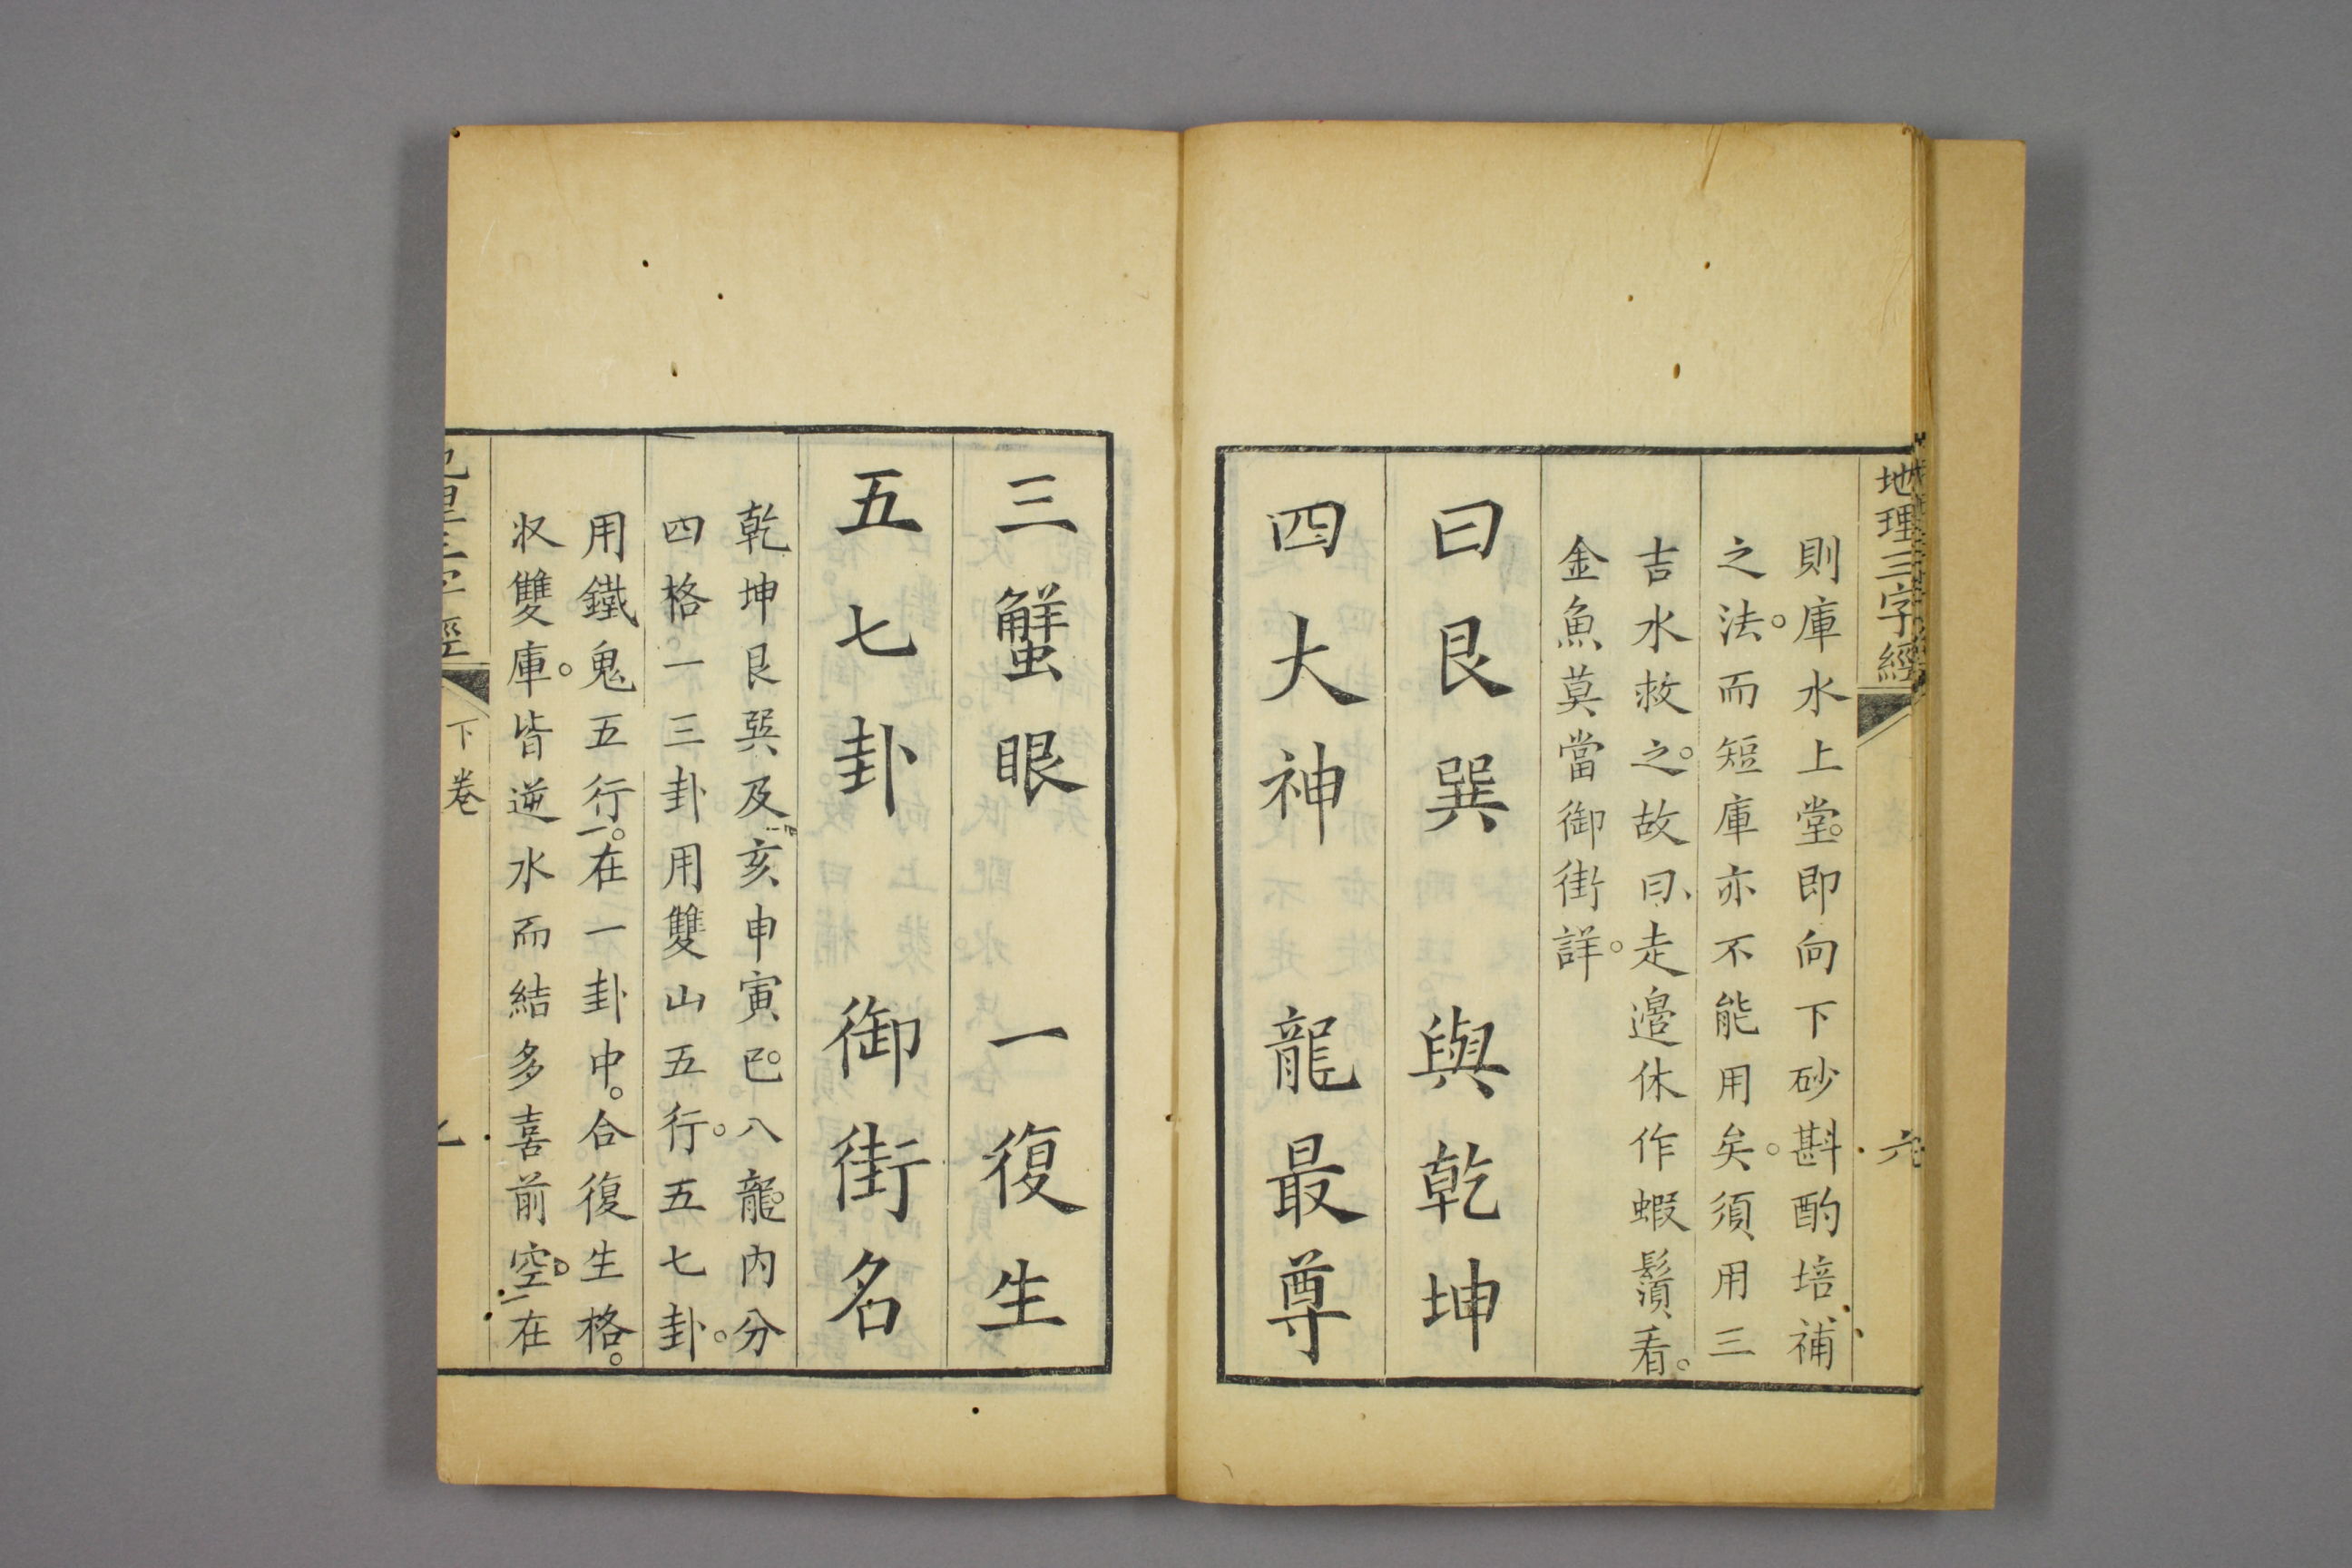 地理三字經
六
則庫水上堂。即向下砂斟酌培補
之法。而短庫亦不能用矣。須用三
吉水救之。故曰、走邉休作蝦鬚看。
金魚莫當御街詳。
曰艮巽 與乾坤
四大神 龍最尊
三蟹眼 一復生
五七卦 御街名
乾坤艮巽及亥申寅巳。八龍。内分
四格。一三卦用雙山五行。五七卦。
用鐵鬼五行。一在一卦中。合復生格。
収雙庫。皆逆水而結多喜前空。一在
地理三字經
下卷
七